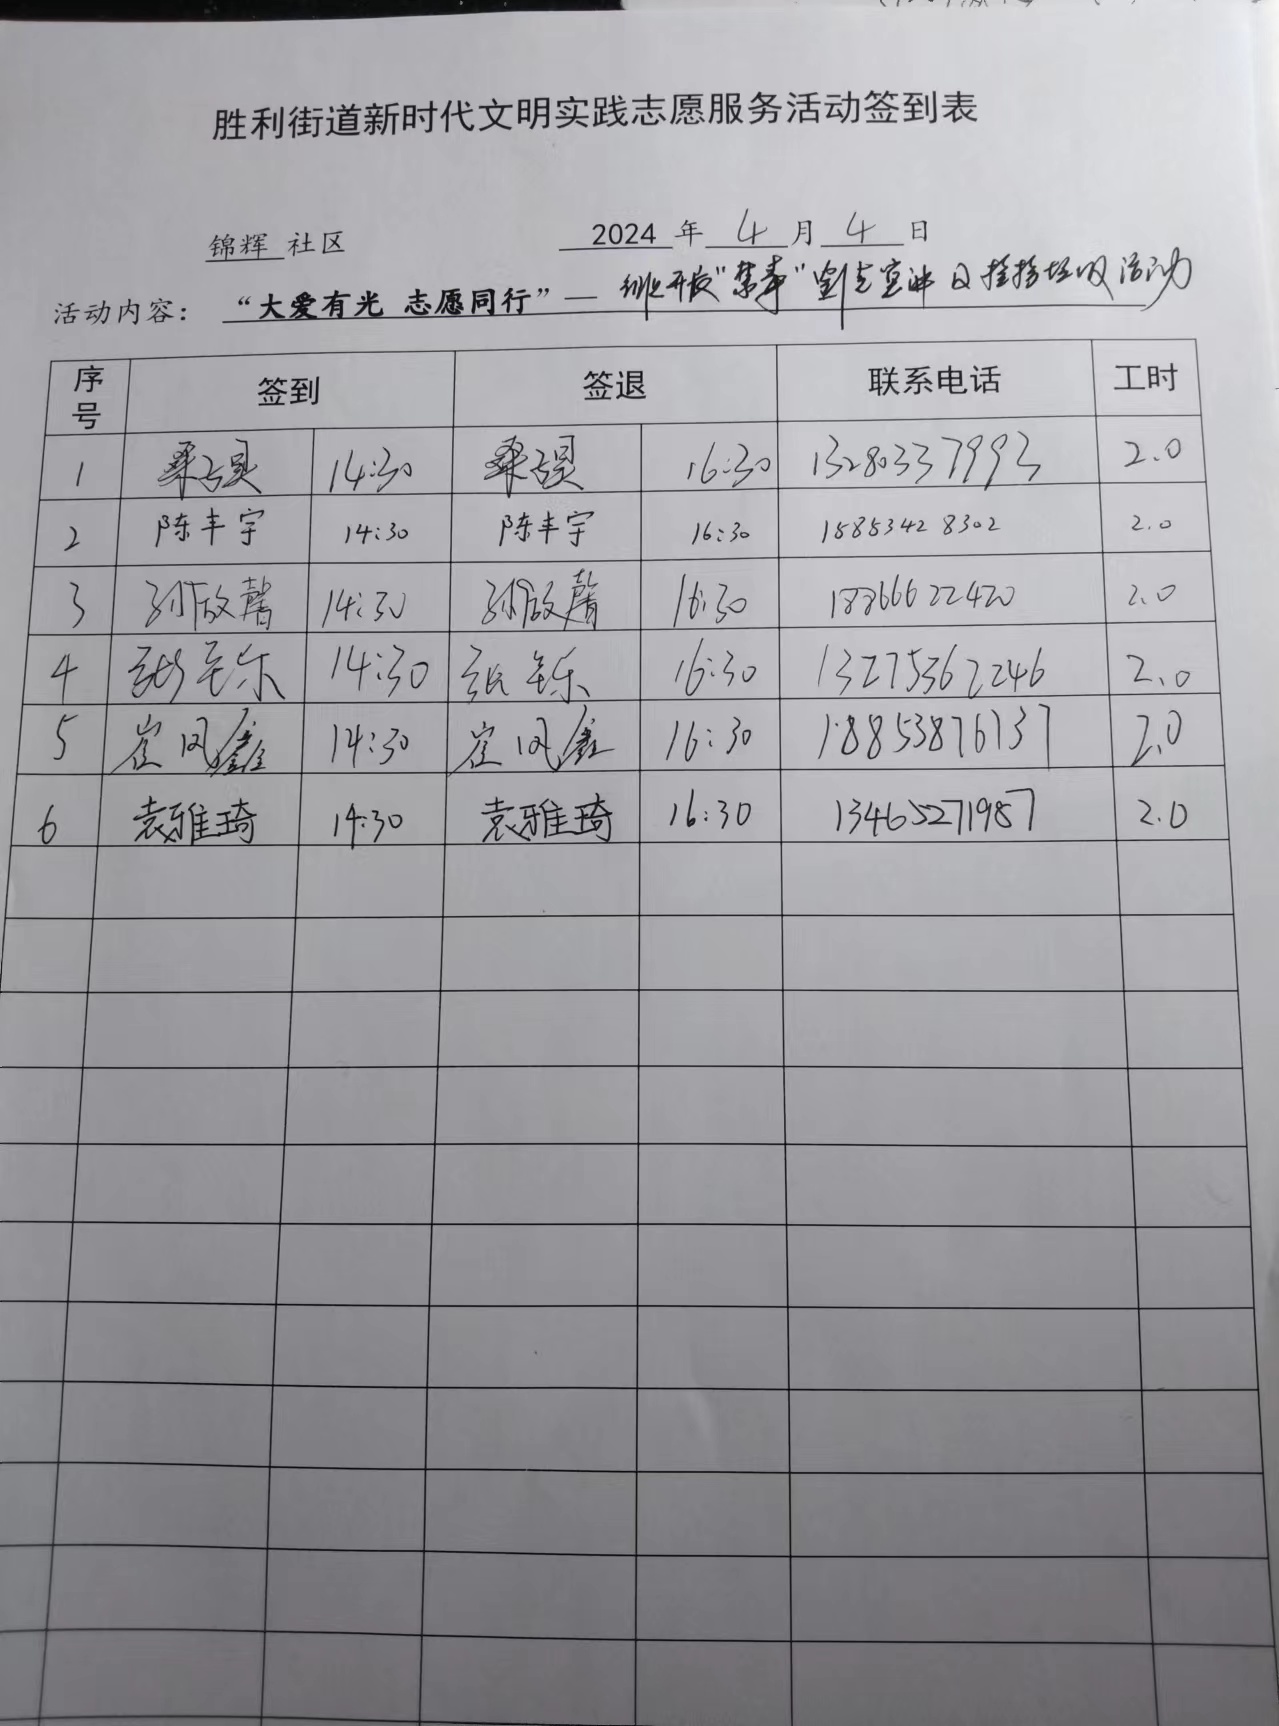 胜利街道新时代文明实践志愿服务活动签到表
锦辉 社区 2024 年 4 月 4 日
活动内容： “大爱有光 志愿同行”— 开展“禁毒” 活动
序号 签到 签退 联系电话 工时
1 14:30 16:30 13280337993 2.0
2 陈丰宇 14:30 陈丰宇 16:30 18853428302 2.0
3 14:30 16:30 2.0
4 14:30 16:30 13275362246 2.0
5 崔凤鑫 14:30 崔凤鑫 16:30 18853876737 2.0
6 袁雅琦 14:30 袁雅琦 16:30 13465271987 2.0